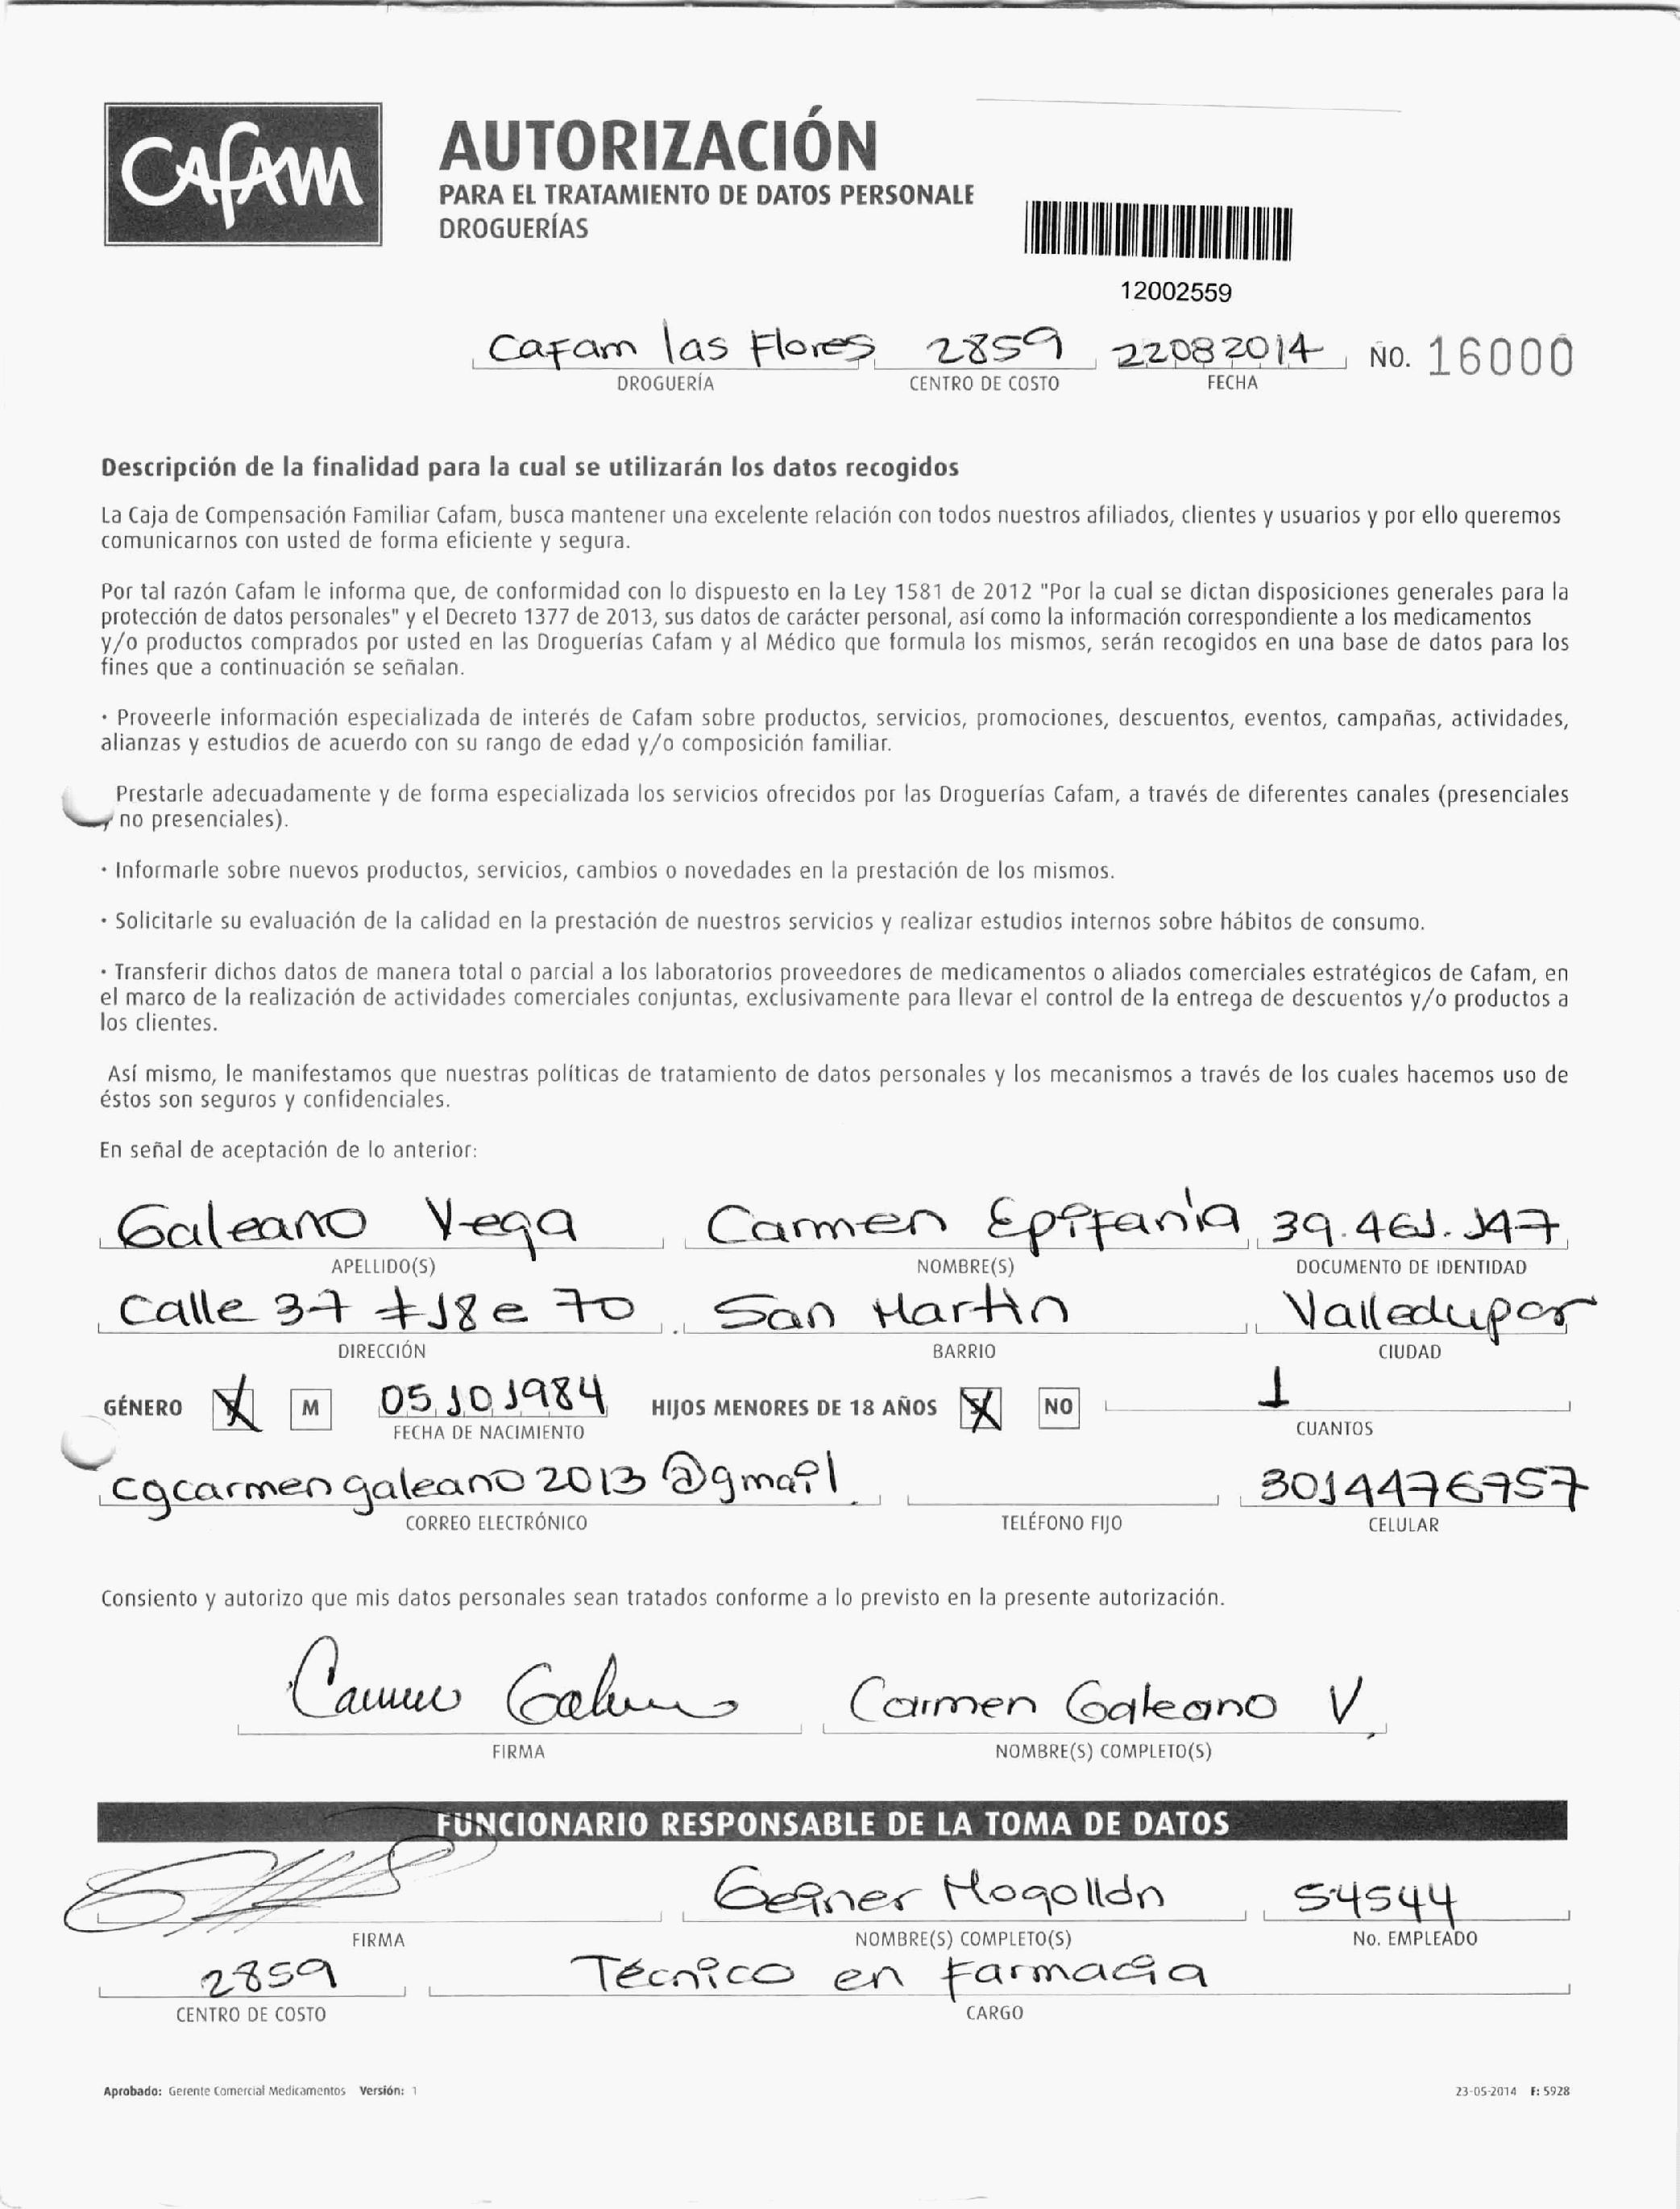 Cafam
AUTORIZACIÓN
PARA EL TRATAMIENTO DE DATOS PERSONALE
DROGUERÍAS
12002559
Cafam las Flores 2859 22082014 NO. 16000
DROGUERÍA CENTRO DE COSTO FECHA
Descripción de la finalidad para la cual se utilizarán los datos recogidos
La Caja de Compensación Familiar Cafam, busca mantener una excelente relación con todos nuestros afiliados, clientes y usuarios y por ello queremos
comunicarnos con usted de forma eficiente y segura.
Por tal razón Cafam le informa que, de conformidad con lo dispuesto en la Ley 1581 de 2012 "Por la cual se dictan disposiciones generales para la
protección de datos personales" y el Decreto 1377 de 2013, sus datos de carácter personal, así como la información correspondiente a los medicamentos
y/o productos comprados por usted en las Droguerías Cafam y al Médico que formula los mismos, serán recogidos en una base de datos para los
fines que a continuación se señalan.
· Proveerle información especializada de interés de Cafam sobre productos, servicios, promociones, descuentos, eventos, campañas, actividades,
alianzas y estudios de acuerdo con su rango de edad y/o composición familiar.
Prestarle adecuadamente y de forma especializada los servicios ofrecidos por las Droguerías Cafam, a través de diferentes canales (presenciales
y no presenciales).
· Informarle sobre nuevos productos, servicios, cambios o novedades en la prestación de los mismos.
· Solicitarle su evaluación de la calidad en la prestación de nuestros servicios y realizar estudios internos sobre hábitos de consumo.
· Transferir dichos datos de manera total o parcial a los laboratorios proveedores de medicamentos o aliados comerciales estratégicos de Cafam, en
el marco de la realización de actividades comerciales conjuntas, exclusivamente para llevar el control de la entrega de descuentos y/o productos a
los clientes.
Así mismo, le manifestamos que nuestras políticas de tratamiento de datos personales y los mecanismos a través de los cuales hacemos uso de
éstos son seguros y confidenciales.
En señal de aceptación de lo anterior:
Galeano Vega Carmen Epifania 39.461.147
APELLIDO(S) NOMBRE(S) DOCUMENTO DE IDENTIDAD
Calle 37 #18e 70 San Martin Valledupar
DIRECCIÓN BARRIO CIUDAD
GÉNERO X M 05101984 HIJOS MENORES DE 18 AÑOS X NO 1
FECHA DE NACIMIENTO CUANTOS
cgcarmengaleano2013@gmail. 3014476957
CORREO ELECTRÓNICO TELÉFONO FIJO CELULAR
Consiento y autorizo que mis datos personales sean tratados conforme a lo previsto en la presente autorización.
Carmen Galeano Carmen Galeano V.
FIRMA NOMBRE(S) COMPLETO(S)
FUNCIONARIO RESPONSABLE DE LA TOMA DE DATOS
Geiner Mogollón 54544
FIRMA NOMBRE(S) COMPLETO(S) No. EMPLEADO
2859 Técnico en Farmacia
CENTRO DE COSTO CARGO
Aprobado: Gerente Comercial Medicamentos Versión: 1 23-05-2014 F: 5928